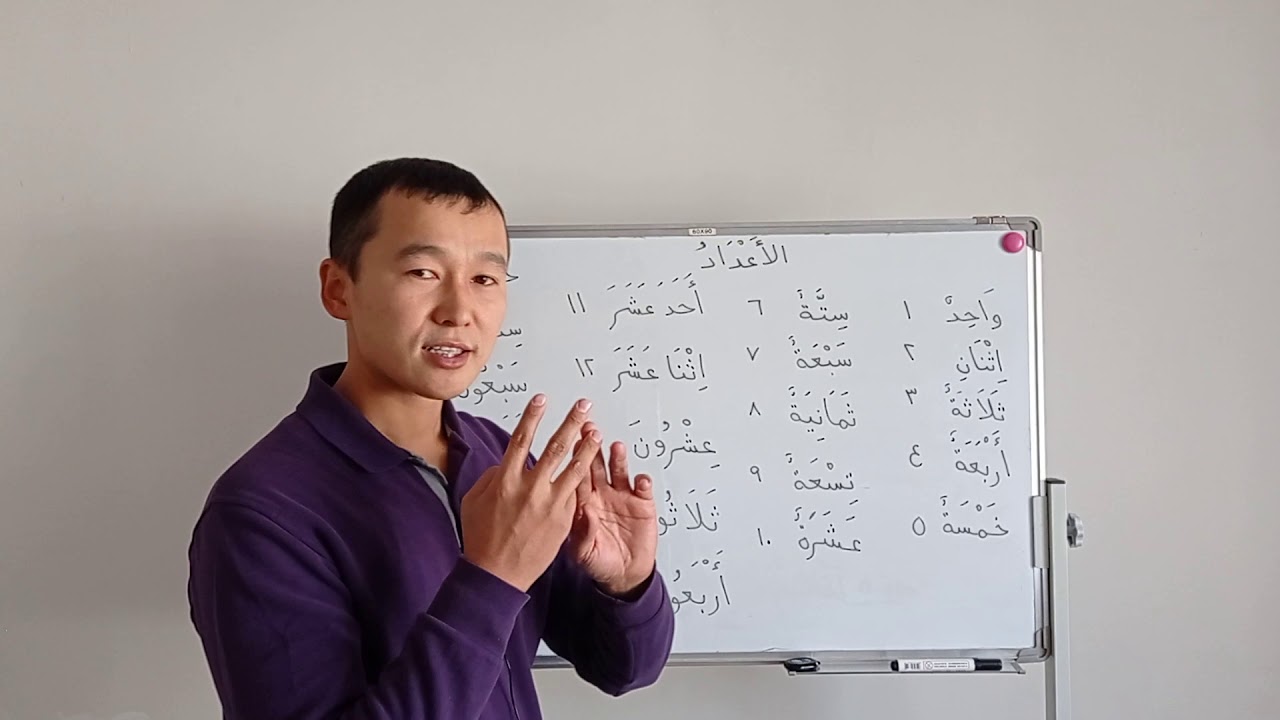 60X90
الأَعْدَادُ
وَاحِدٌ ١
اِثْنَانِ ٢
ثَلَاثَةٌ ٣
أَرْبَعَةٌ ٤
خَمْسَةٌ ٥
سِتَّةٌ ٦
سَبْعَةٌ ٧
ثَمَانِيَةٌ ٨
تِسْعَةٌ ٩
عَشَرَةٌ ١٠
أَحَدَ عَشَرَ ١١
اِثْنَا عَشَرَ ١٢
عِشْرُونَ